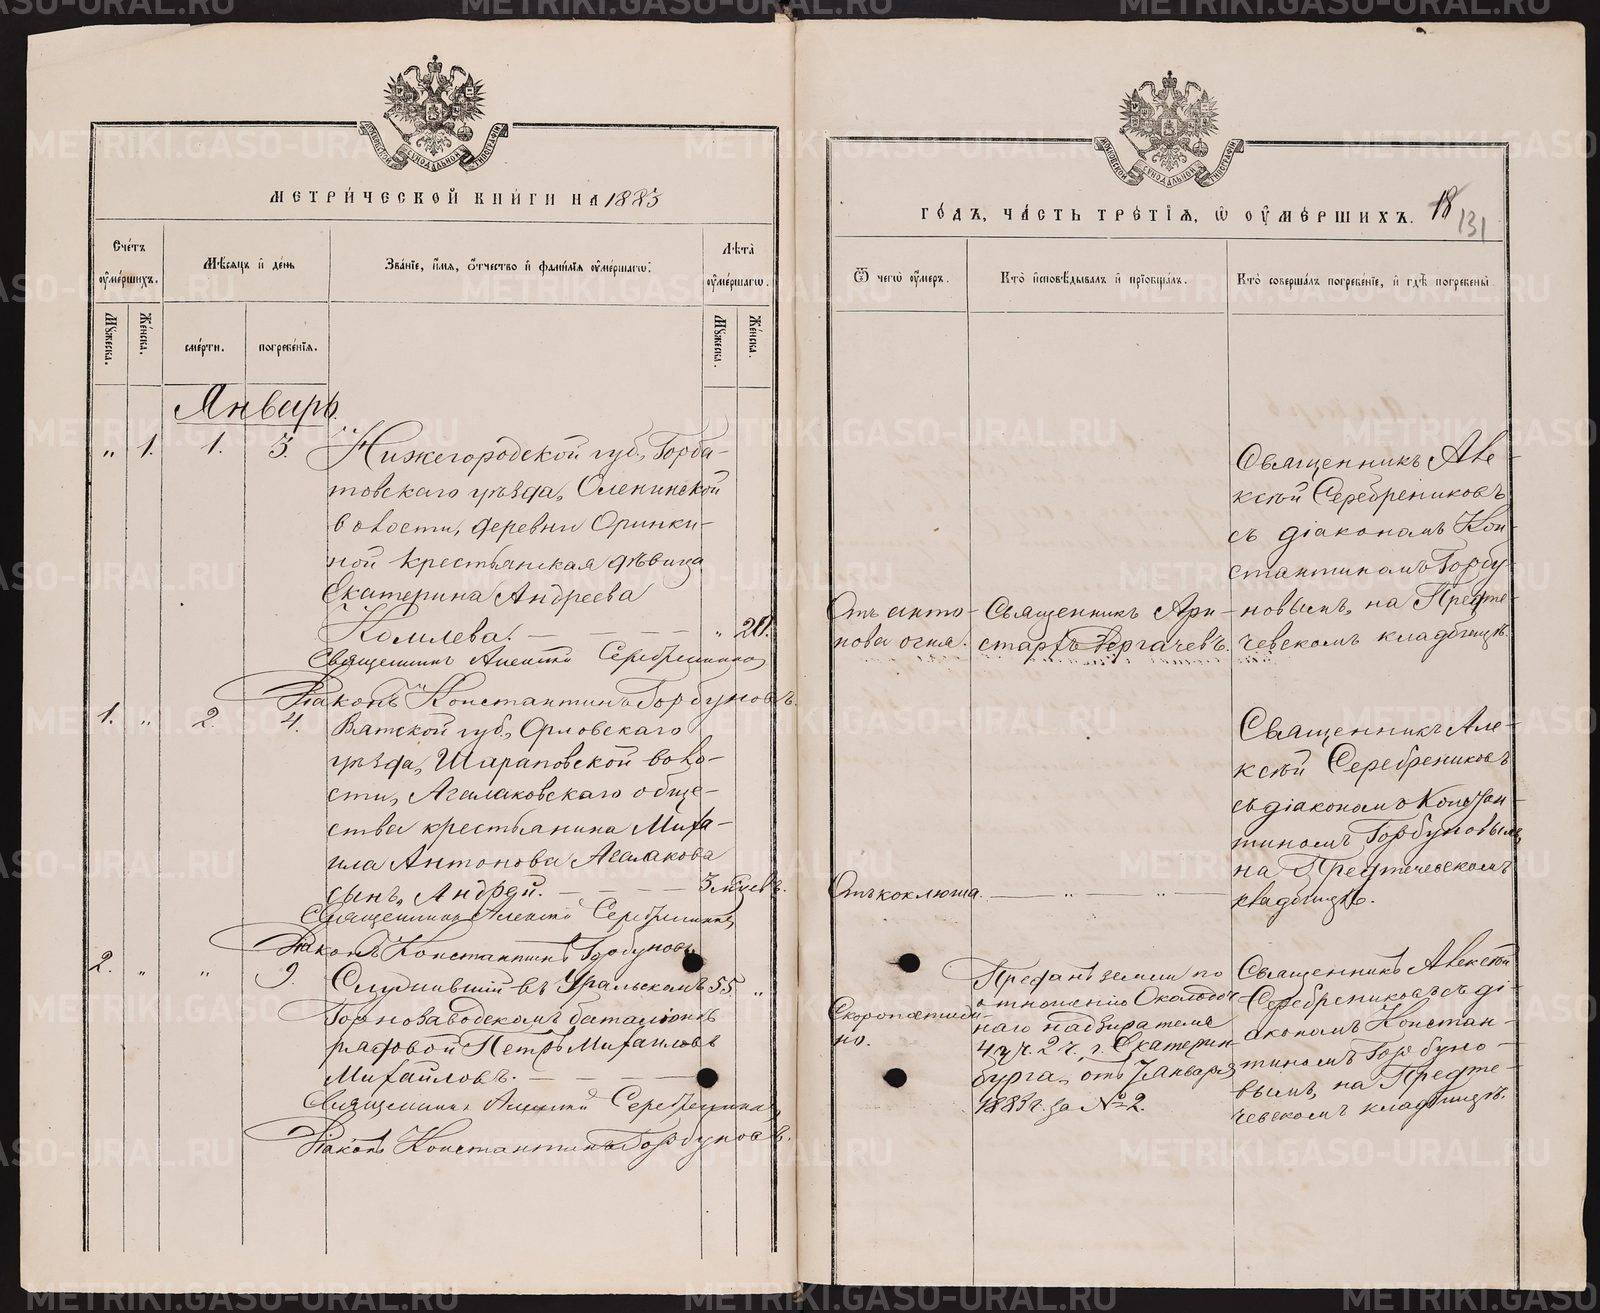 МЕТРИЧЕСКОЙ КНИГИ НА 1883
Счетъ оумершихъ.
Мѣсяцъ и день
Званіе, имя, отчество и фамилія оумершагw.
Лѣта оумершагw.
Мужеска.
Женска.
смерти.
погребенія.
Мужеска.
Женска.
Январь.
" 1. 1. 3. Нижегородской губ., Горба-
товскаго уѣзда, Оленинской
волости, деревни Оринки-
ной крестьянская дѣвица
Екатерина Андреева
Комлева. — — — — " 20.
Священникъ Алексѣй Серебренников
Діаконъ Константинъ Горбуновъ.
1. " 2. 4. Вятской губ., Орловскаго
уѣзда, Шараповской воло-
сти, Агалаковскаго обще-
ства крестьянина Миха-
ила Антонова Агалакова
сынъ Андрей. — — — — 3 мѣсяцевъ.
Священникъ Алексѣй Серебренников
Діаконъ Константинъ Горбуновъ.
2. " " 9. Служившій въ Уральскомъ 55. "
Горнозаводскомъ баталіонѣ
рядовой Петръ Михаиловъ
Михайловъ. — — —
Священникъ Алексѣй Серебренников
Діаконъ Константинъ Горбуновъ.
ГОДЪ, ЧАСТЬ ТРЕТІЯ, Ѡ ОУМЕРШИХЪ. 18
131
Ѿ чегw оумеръ.
Кто исповѣдывалъ и пріобщалъ.
Кто совершалъ погребеніе, и гдѣ погребены.
Отъ анто-
нова огня.
Священникъ Ари-
стархъ Дергачевъ.
Священникъ Але-
ксѣй Серебрениковъ
съ діакономъ Кон-
стантиномъ Горбу-
новымъ, на Предте-
чевскомъ кладбищѣ.
Отъ коклюша. — " — " —
Священникъ Але-
ксѣй Серебрениковъ
съ діакономъ Констан-
тиномъ Горбуновымъ,
на Предтечевскомъ
кладбищѣ.
Скоропостиж-
но.
Преданъ земли по
отношенію Околодоч-
наго надзирателя
4 уч. 2 ч. г. Екатерин-
бурга, отъ 7 Января
1883 г. за № 2.
Священникъ Алексѣй
Серебрениковъ съ ді-
акономъ Констан-
тиномъ Горбуно-
вымъ, на Предте-
чевскомъ кладбищѣ.
METRIKI.GASO-URAL.RU